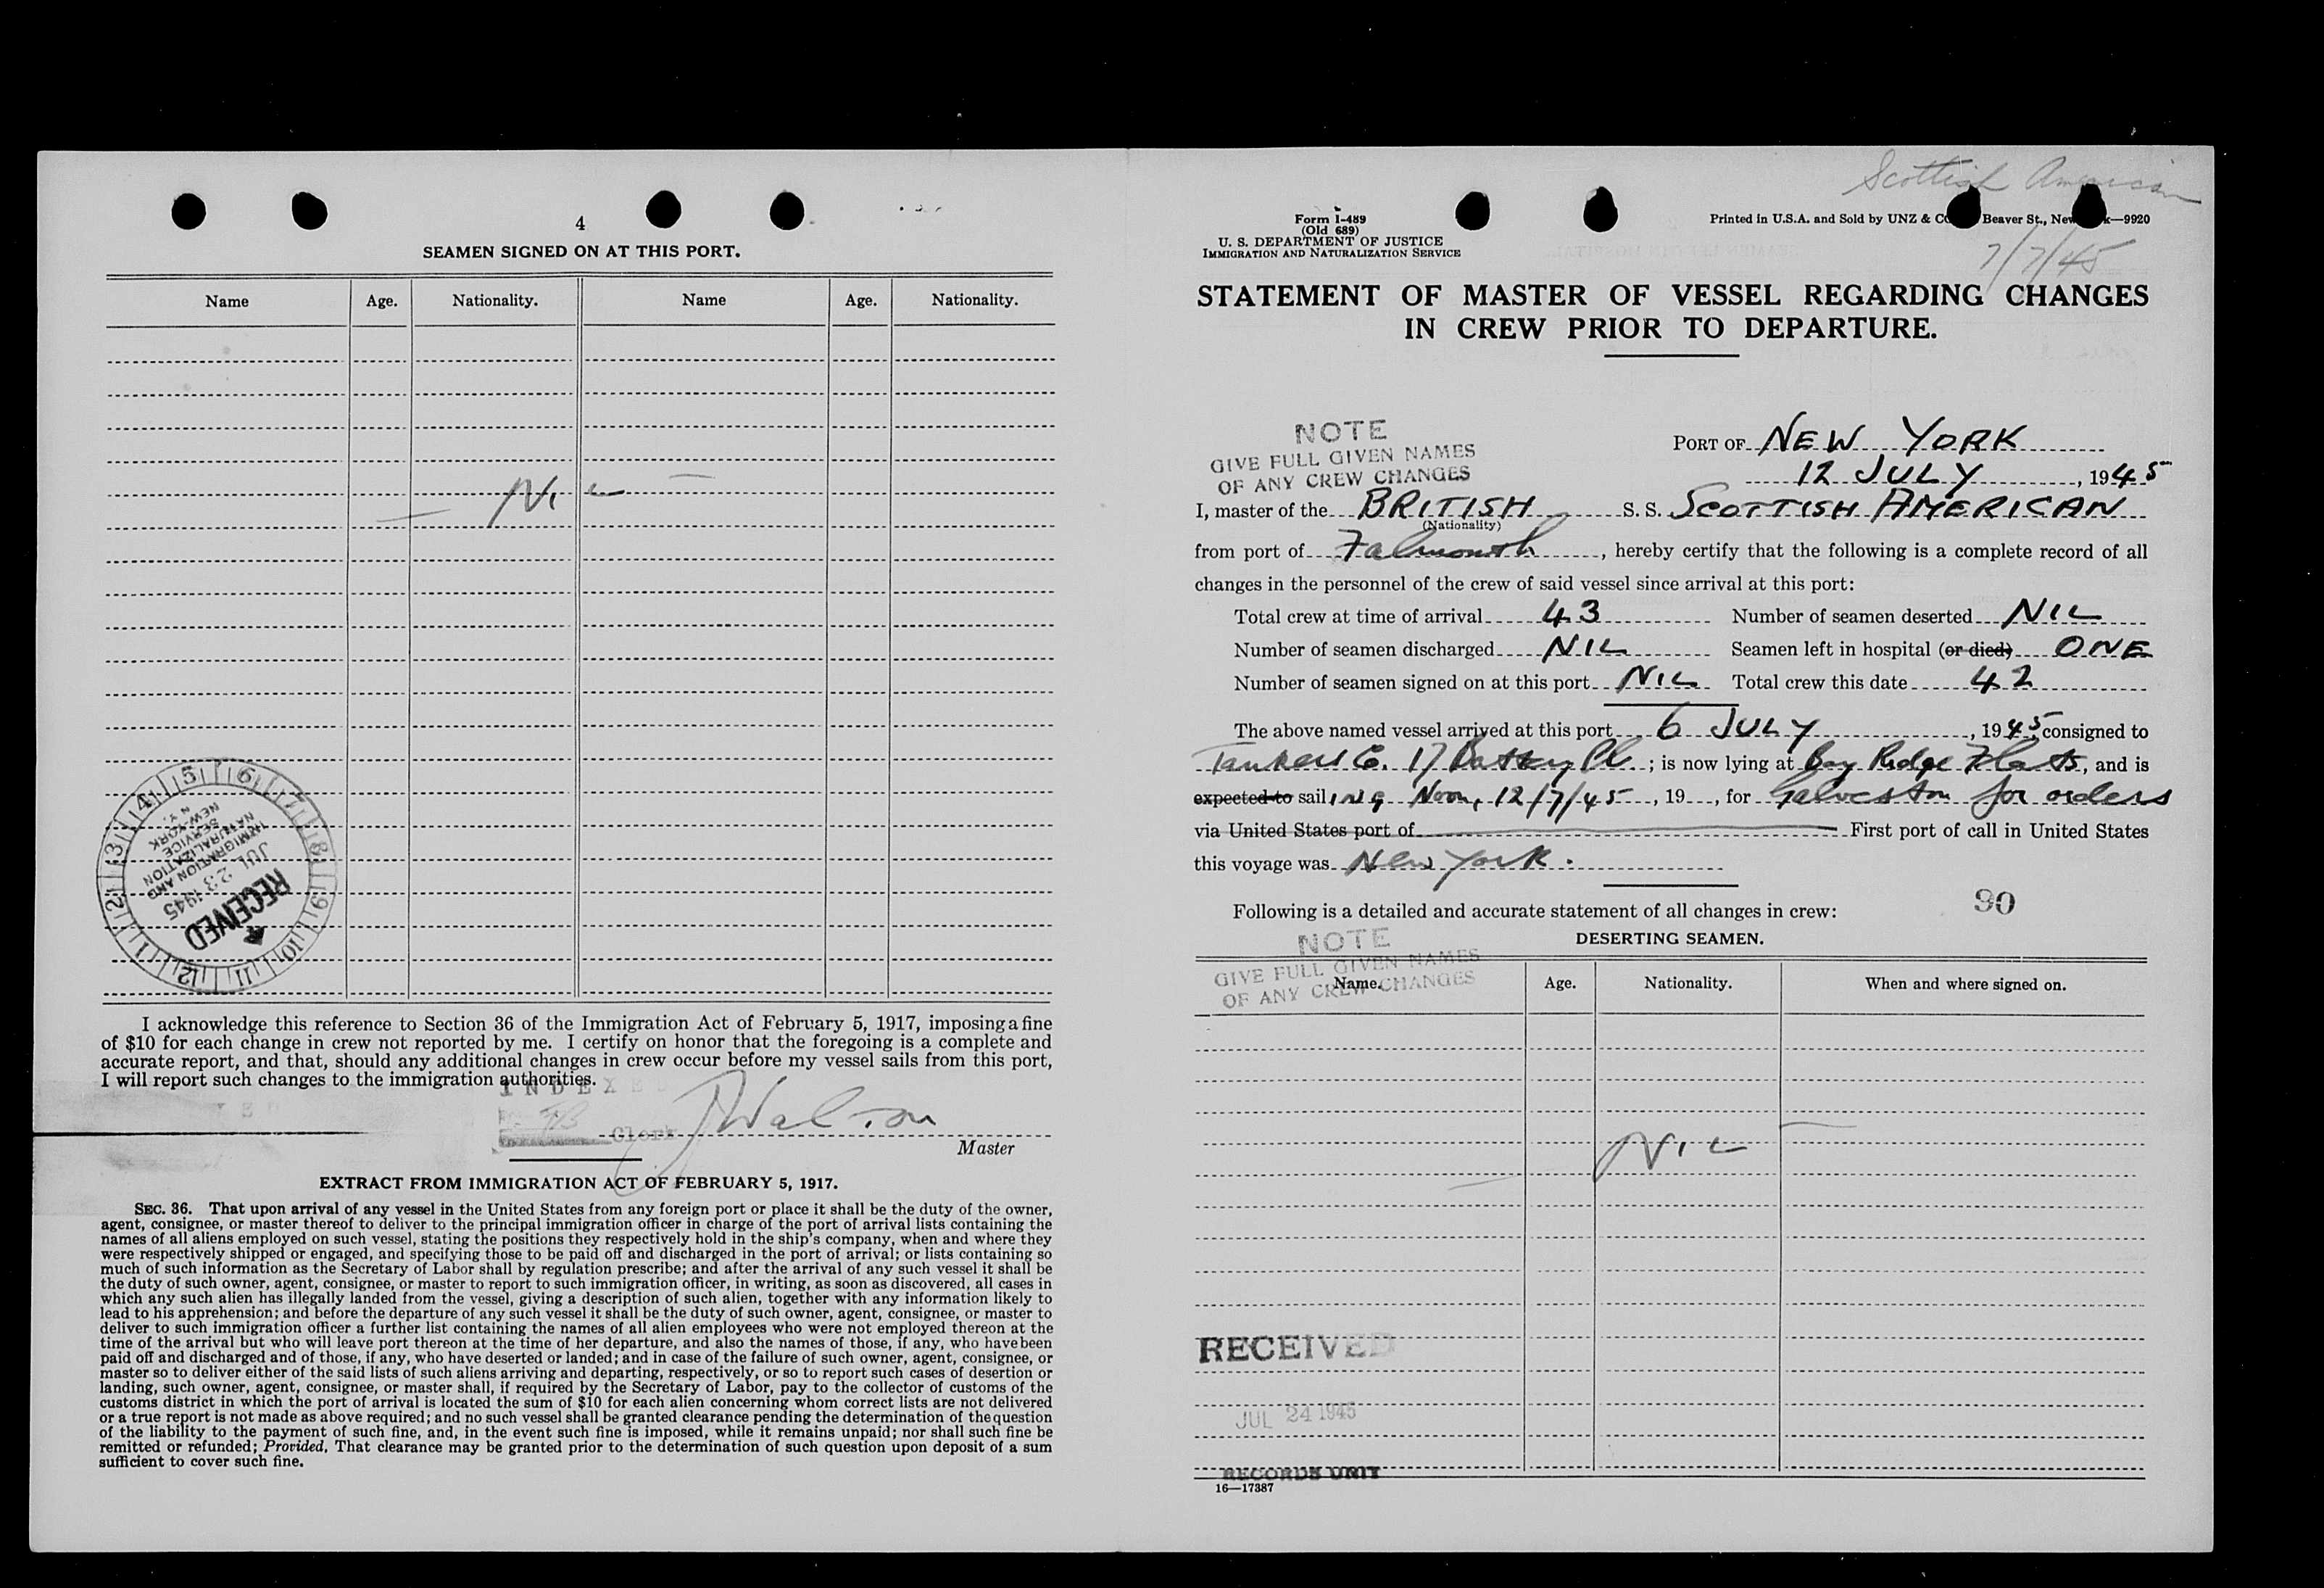 4
SEAMEN SIGNED ON AT THIS PORT.
Name Age. Nationality. Name Age. Nationality.
NIL
5 6 7 8 9 10 11 12 1 2 3 4
RECEIVED
JUL 23 1945
IMMIGRATION AND
NATURALIZATION
SERVICE
NEW YORK
N. Y.
I acknowledge this reference to Section 36 of the Immigration Act of February 5, 1917, imposing a fine
of $10 for each change in crew not reported by me. I certify on honor that the foregoing is a complete and
accurate report, and that, should any additional changes in crew occur before my vessel sails from this port,
I will report such changes to the immigration authorities.
INDEXED
Clerk
Master
EXTRACT FROM IMMIGRATION ACT OF FEBRUARY 5, 1917.
SEC. 36. That upon arrival of any vessel in the United States from any foreign port or place it shall be the duty of the owner,
agent, consignee, or master thereof to deliver to the principal immigration officer in charge of the port of arrival lists containing the
names of all aliens employed on such vessel, stating the positions they respectively hold in the ship's company, when and where they
were respectively shipped or engaged, and specifying those to be paid off and discharged in the port of arrival; or lists containing so
much of such information as the Secretary of Labor shall by regulation prescribe; and after the arrival of any such vessel it shall be
the duty of such owner, agent, consignee, or master to report to such immigration officer, in writing, as soon as discovered, all cases in
which any such alien has illegally landed from the vessel, giving a description of such alien, together with any information likely to
lead to his apprehension; and before the departure of any such vessel it shall be the duty of such owner, agent, consignee, or master to
deliver to such immigration officer a further list containing the names of all alien employees who were not employed thereon at the
time of the arrival but who will leave port thereon at the time of her departure, and also the names of those, if any, who have been
paid off and discharged and of those, if any, who have deserted or landed; and in case of the failure of such owner, agent, consignee, or
master so to deliver either of the said lists of such aliens arriving and departing, respectively, or so to report such cases of desertion or
landing, such owner, agent, consignee, or master shall, if required by the Secretary of Labor, pay to the collector of customs of the
customs district in which the port of arrival is located the sum of $10 for each alien concerning whom correct lists are not delivered
or a true report is not made as above required; and no such vessel shall be granted clearance pending the determination of the question
of the liability to the payment of such fine, and, in the event such fine is imposed, while it remains unpaid; nor shall such fine be
remitted or refunded; Provided, That clearance may be granted prior to the determination of such question upon deposit of a sum
sufficient to cover such fine.
Scottish American
Form I-489
(Old 689)
U. S. DEPARTMENT OF JUSTICE
IMMIGRATION AND NATURALIZATION SERVICE
Printed in U.S.A. and Sold by UNZ & Beaver St., —9920
7/7/45
STATEMENT OF MASTER OF VESSEL REGARDING CHANGES
IN CREW PRIOR TO DEPARTURE.
NOTE
GIVE FULL GIVEN NAMES
OF ANY CREW CHANGES
PORT OF NEW YORK
12 JULY, 1945
I, master of the BRITISH S. S. SCOTTISH AMERICAN
(Nationality)
from port of Falmouth, hereby certify that the following is a complete record of all
changes in the personnel of the crew of said vessel since arrival at this port:
Total crew at time of arrival 43 Number of seamen deserted NIL
Number of seamen discharged NIL Seamen left in hospital (or died) ONE
Number of seamen signed on at this port NIL Total crew this date 42
The above named vessel arrived at this port 6 JULY, 1945 consigned to
Tankers Co. 17 Battery Pl; is now lying at Bay Ridge Flats, and is
expected to sailing Noon, 12/7/45, 19, for Galveston for orders
via United States port of First port of call in United States
this voyage was New York.
90
Following is a detailed and accurate statement of all changes in crew:
DESERTING SEAMEN.
NOTE
GIVE FULL GIVEN NAMES
OF ANY CREW CHANGES
Name. Age. Nationality. When and where signed on.
NIL
RECEIVED
JUL 24 1945
RECORDS UNIT
16—17387